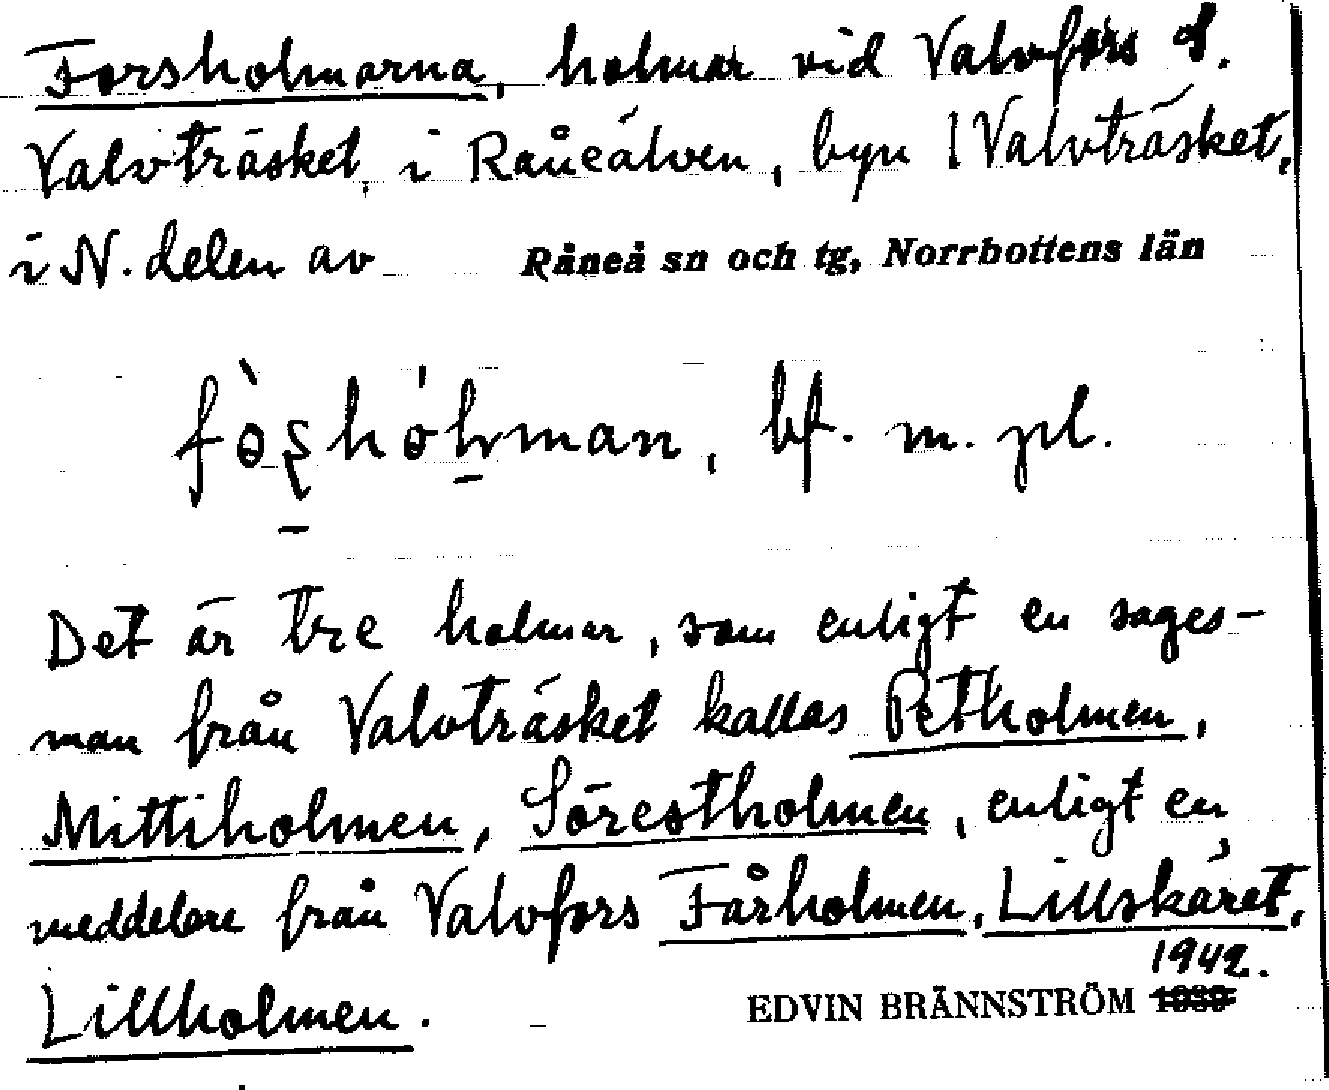 Forsholmarna, holmar vid Valvfors o.
Valvträsket, i Råneälven, byn Valvträsket,
i N. delen av Råneå sn och tg, Norrbottens län
bf. m. pl.
Det är tre holmar, som enligt en sages-
man från Valvträsket kallas Petholmen,
Mittiholmen, Sörestholmen, enligt en
meddelare från Valvfors Fårholmen, Lillskäret,
1942.
Lillholmen. EDVIN BRÄNNSTRÖM 1939